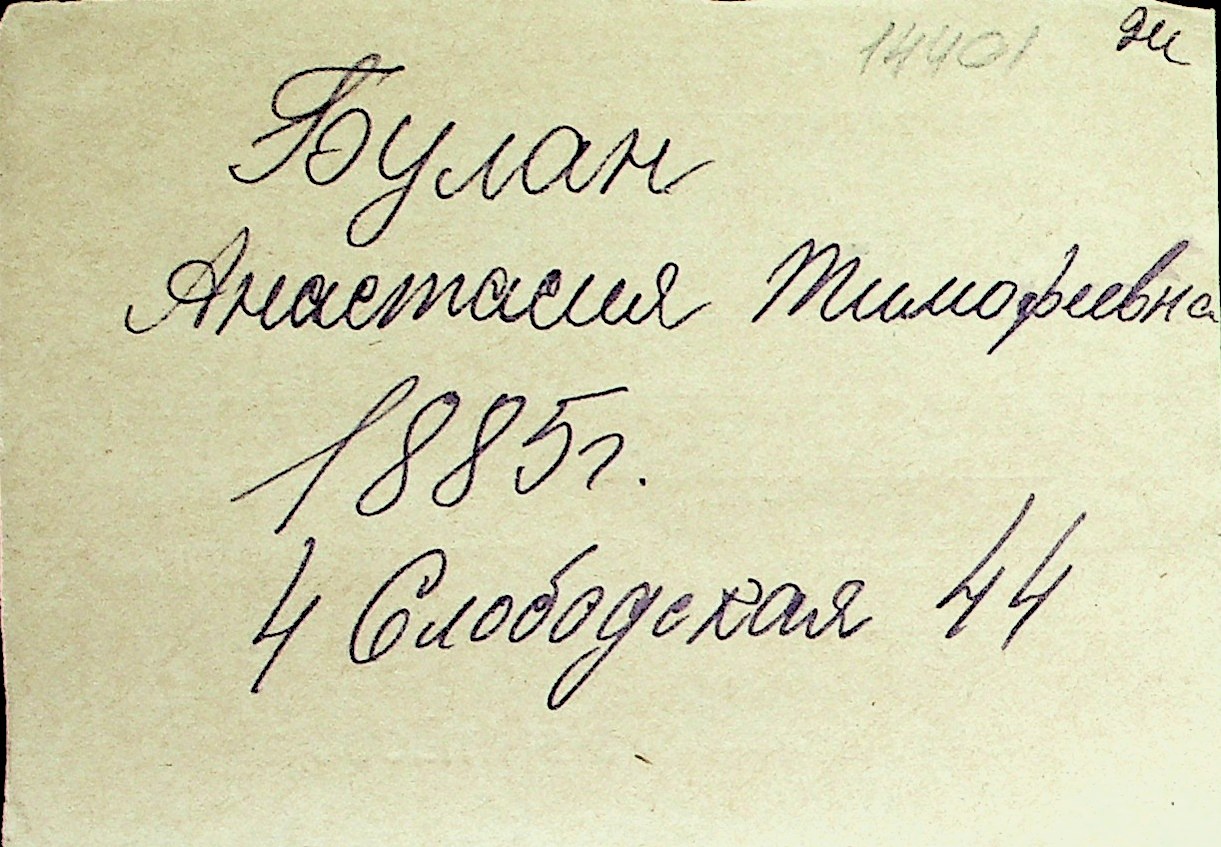 14401
Булан
Анастасия Тимофеевна
1885г.
4 Слободская 44